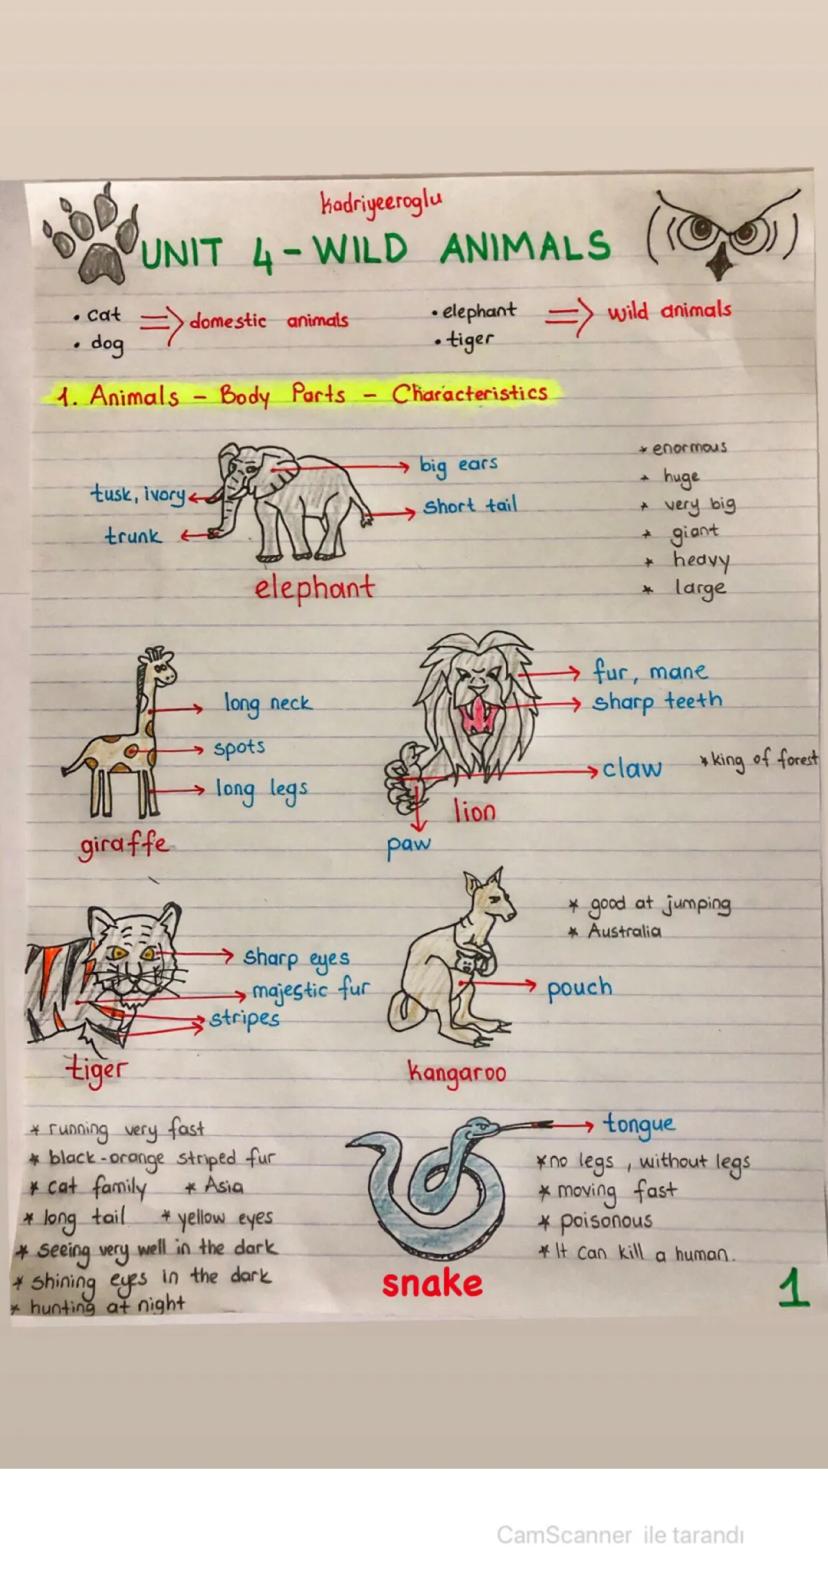 kadriyeeroglu
UNIT 4 - WILD ANIMALS
• cat
• dog
⇒ domestic animals
• elephant
• tiger
⇒ wild animals
1. Animals - Body Parts - Characteristics
big ears
tusk, ivory
short tail
trunk
elephant
* enormous
* huge
* very big
* giant
* heavy
* large
long neck
spots
long legs
giraffe
fur, mane
sharp teeth
claw
* king of forest
lion
paw
sharp eyes
majestic fur
stripes
tiger
* good at jumping
* Australia
pouch
kangaroo
* running very fast
* black-orange striped fur
* cat family * Asia
* long tail * yellow eyes
* seeing very well in the dark
* shining eyes in the dark
* hunting at night
tongue
* no legs, without legs
* moving fast
* poisonous
* It can kill a human.
snake
1
CamScanner ile tarandı